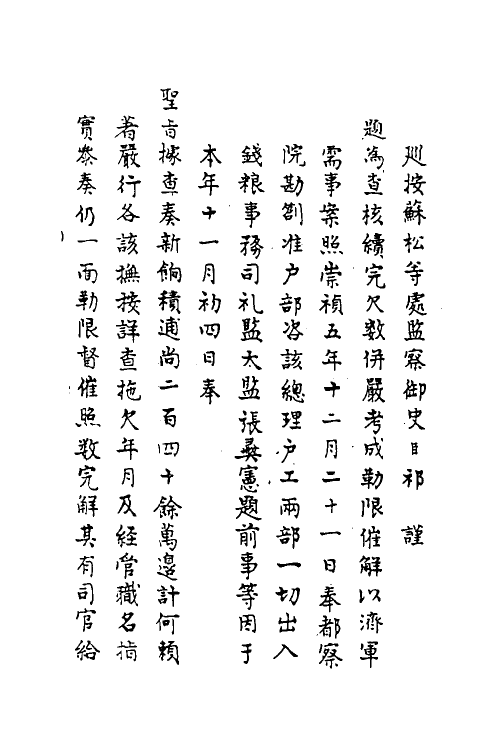 廵按蘇松等處監察御史臣祁　謹
題為查核績完欠數併嚴考成勒限催解以濟軍
需事案照崇禎五年十二月二十一日奉都察
院勘劄准户部咨該總理户工兩部一切出入
錢粮事務司礼監太監張彝憲題前事等因于
本年十一月初四日奉
聖旨據查奏新餉積逋尚二百四十餘萬邊計何賴
着嚴行各該撫按詳查拖欠年月及經管職名指
實叅奏仍一面勒限督催照数完解其有司官給